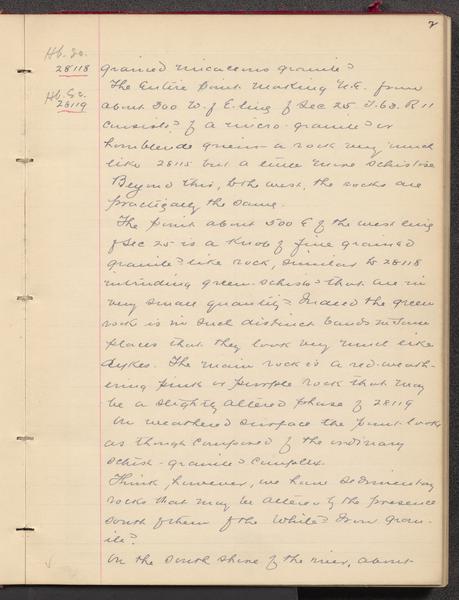 2
Hb. Gr.
28118 grained micaceous granite?
The Entire Point making N.E. from
Hb. Gr.
28119
about 500 W. of E. line of Sec 25 T. 63. R 11
consists of a micro-granite? or
hornblende gneiss - a rock very much
like 28115 but a little more schistose
Beyond this, to the west, the rocks are
practically the same.
The point about 500 E of the west line
of Sec 25 is a knob of fine grained
granite? like rock, similar to 28118
intruding green schists? that are in
very small quantity? Indeed the green
rock is in such distinct bands in some
places that they look very much like
dykes. The main rock is a red-weath-
ering pink or purple rock that may
be a slightly altered phase of 28119
On weathered surface the point looks
as though composed of the ordinary
schist-granite? complex.
Think, however, we have sedimentary
rocks that may be altered by the presence
south of them of the White? Iron gran-
ite?
On the south shore of the river, about